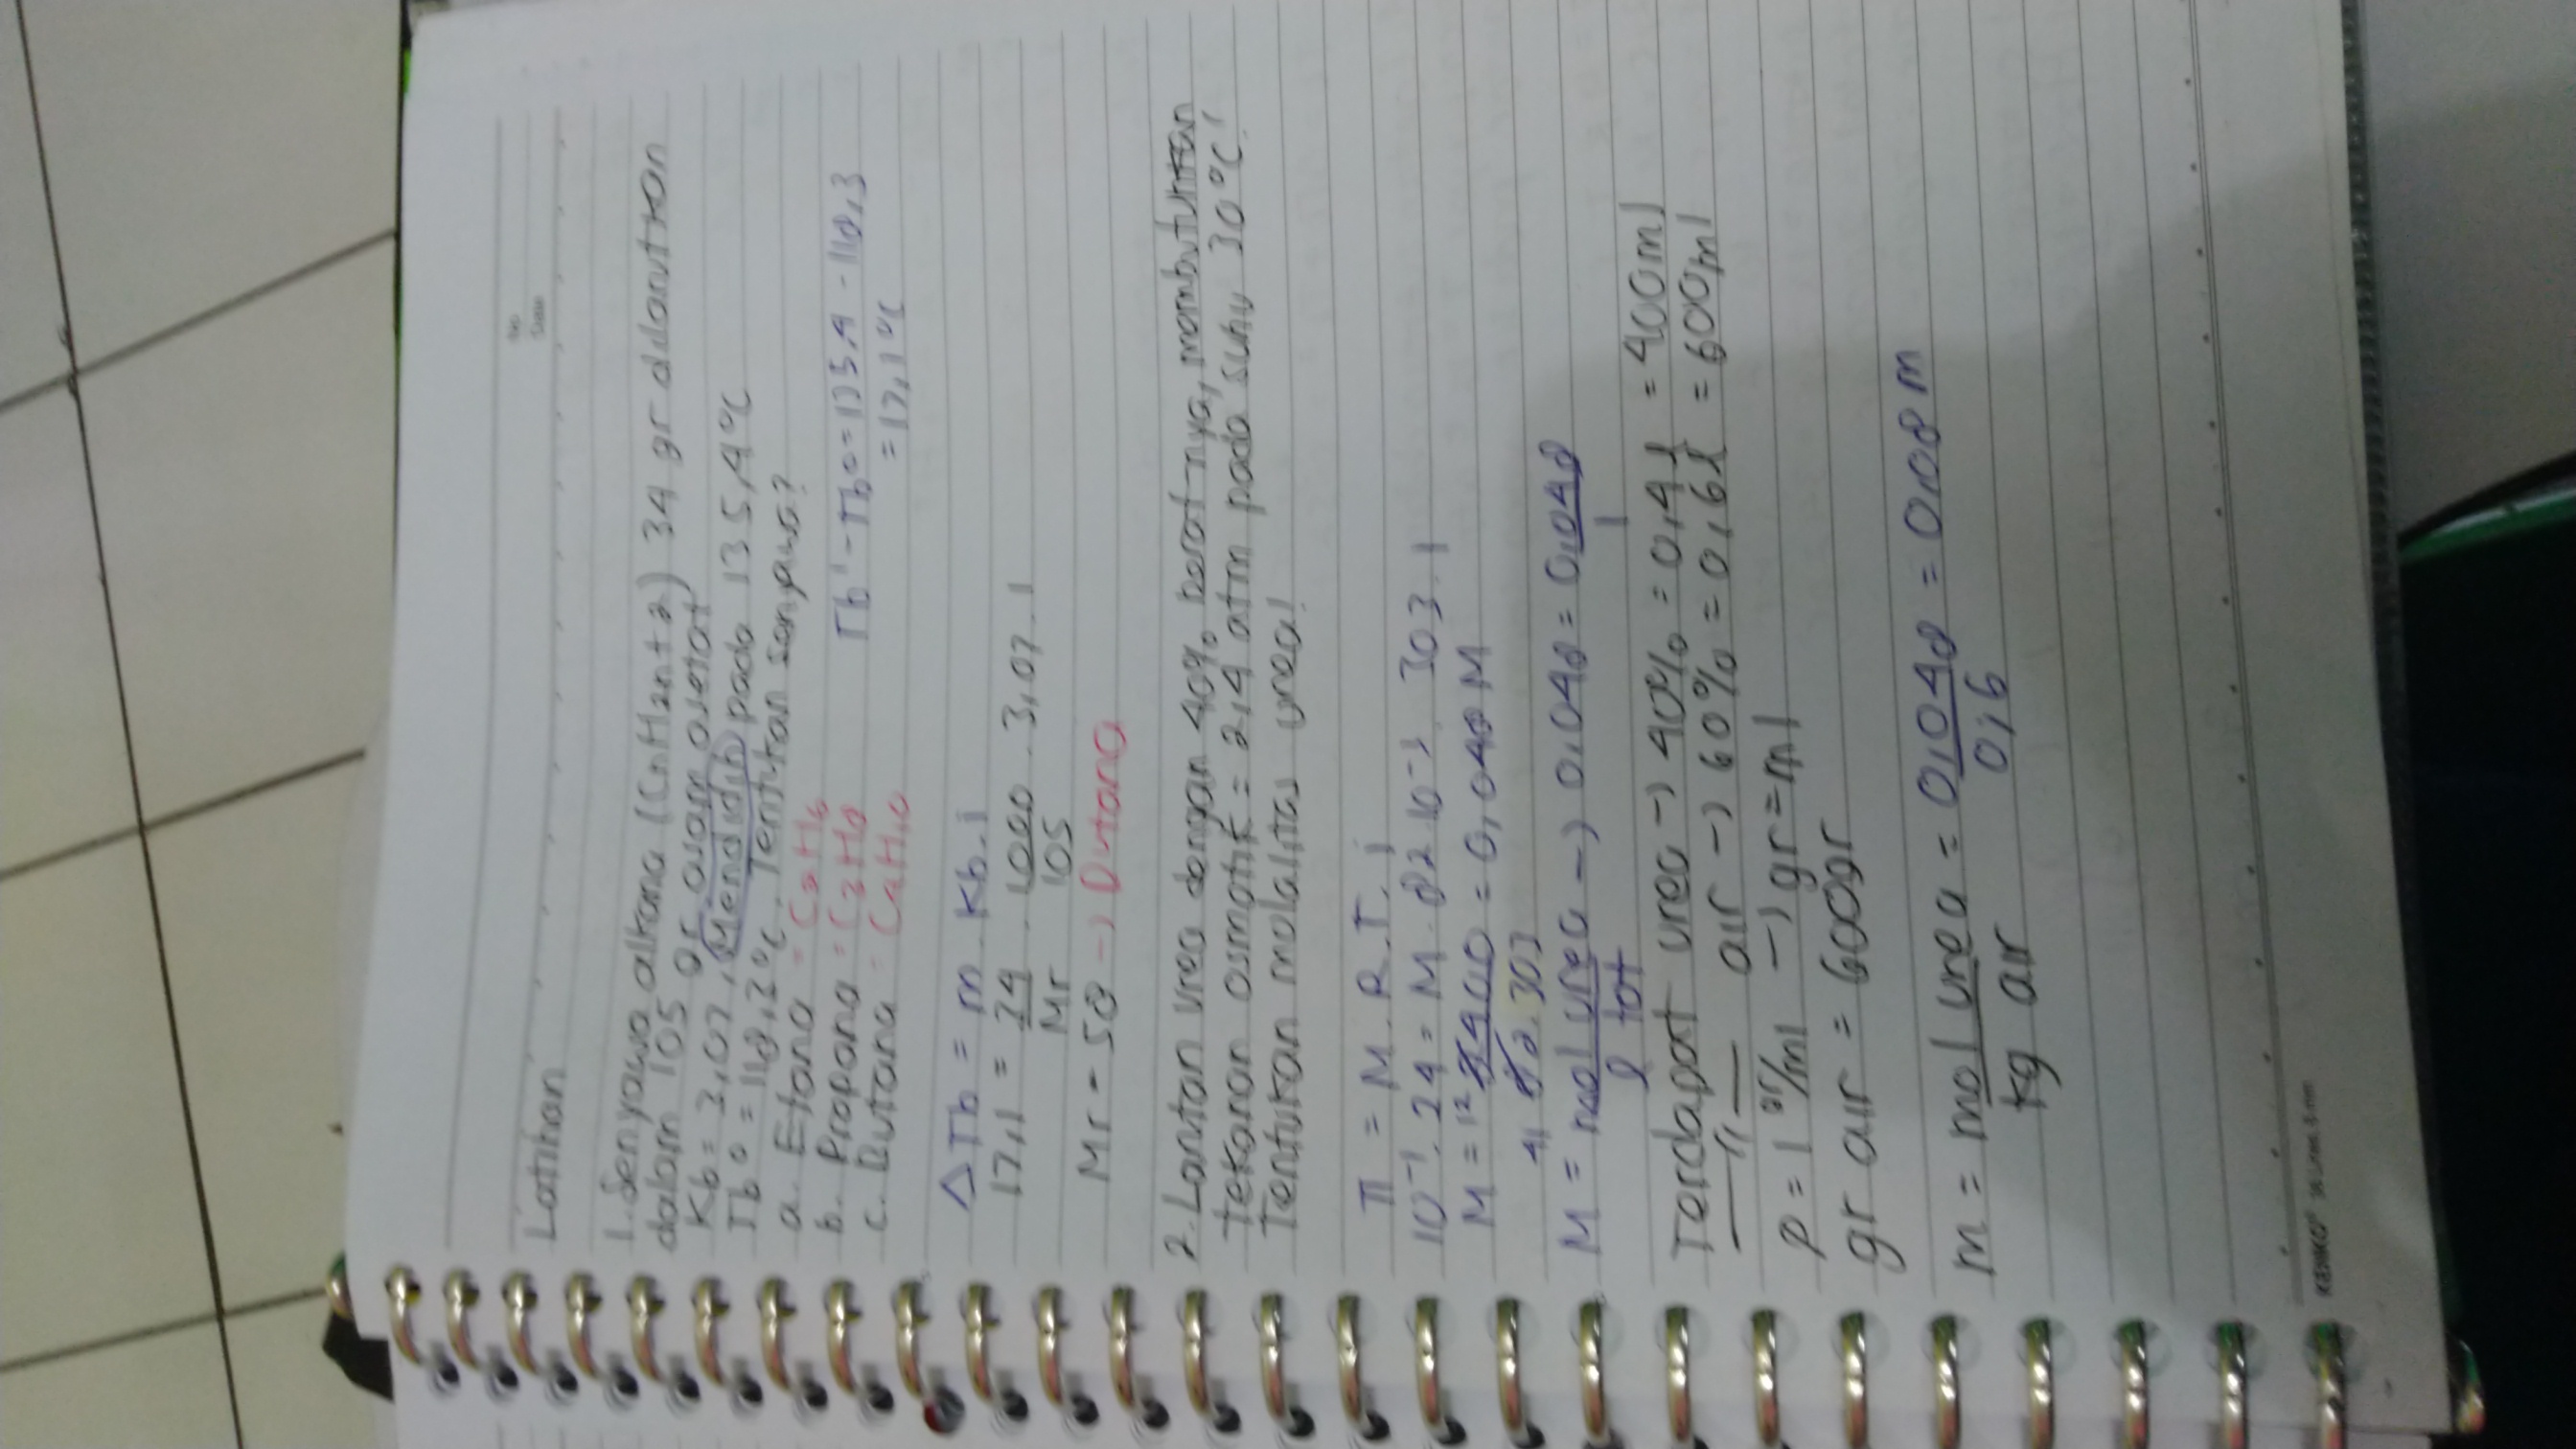 No
Date
Latihan
1. Senyawa alkana (CnH2n+2) 34 gr dilarutkan
dalam 105 gr asam asetat
Kb = 3,07, Mendidih pada 135,4°C
Tb° = 118,3°C. Tentukan senyawa?
a. Etana = C2H6
b. Propana = C3H8
c. Butana = C4H10
Tb' - Tb° = 135,4 - 118,3
= 17,1°C
ΔTb = m . Kb . i
17,1 = 34/Mr . 1000/105 . 3,07 . 1
Mr = 58 → Butana
2. Larutan urea dengan 40% berat-nya, membutuhkan
tekanan osmotik = 2,4 atm pada suhu 30°C!
Tentukan molalitas urea!
π = M . R . T . i
10⁻¹ . 24 = M . 82 . 10⁻³ . 303 . 1
M = 12 2400 = 0,048 M
41 82.303
M = mol urea → 0,048 = 0,048
l tot 1
Terdapat urea → 40% = 0,4 l = 400ml
—〃— air → 60% = 0,6 l = 600ml
ρ = 1 gr/ml → gr = ml
gr air = 600gr
m = mol urea = 0,048 = 0,08 m
kg air 0,6
KENKO 36 Lines, 8 mm